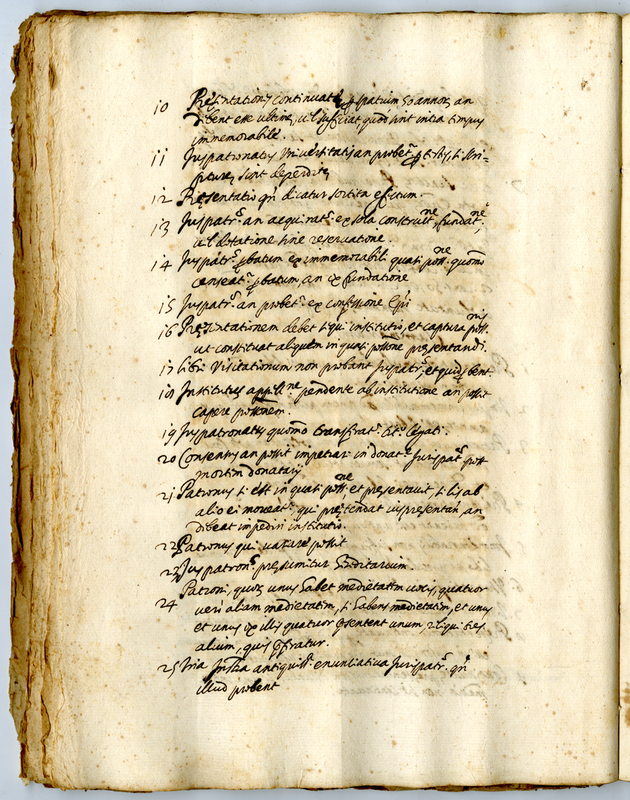 10 Presentationes continuatæ p spatium 50 annor, an
debent esse ultimæ, vel sufficiat quod sint intra tempus
immemorabile.
11 Juspatronatus Universitatis an probet p testes, si scri-
pturæ sint deperditæ
12 Presentatio qn dicatur sortita effectum.
13 Juspatr.s an acquirat.r ex sola construct.ne, fundat.ne,
vel dotatione sine reservatione.
14 Juspatr.s pbatum ex immemorabili quasi poss.ne quomo
censeat.r pbatum, an ex fundatione
15 Juspatr.s an probet.r ex confessione Epi
16 Presentationem debet sequi institutio, et captura poss.nis
ut constituat aliquem in quasi possone presentandi.
17 Libri Visitationum non probant Juspatr.s, et quid pbent.
18 Institutus appell.ne pendente ab institutione an possit
capere possonem.
19 Juspatronatus quomo transferat.r tit.o legati.
20 Consensus an possit impetrari in donat.e Jurispat.s post
mortem donatarij
21 Patronus si est in quasi poss.ne et presentavit, si lis ab
alio ei moveat.r qui pretendat juspresentan, an
debeat impediri institutio.
22 Patronus qui variare possit
23 Juspatron.s presumitur hereditarium.
24 Patroni, quor unus habet medietatem vocis, quatuor
veri aliam medietatem, si habens medietatem, et unus
et unus ex illis quatuor psentent unum, reliqui tres
alium, quis pferatur.
25 Tria Jnstra antiquiss.a enunciativa Jurispatr.s qn
illud probent